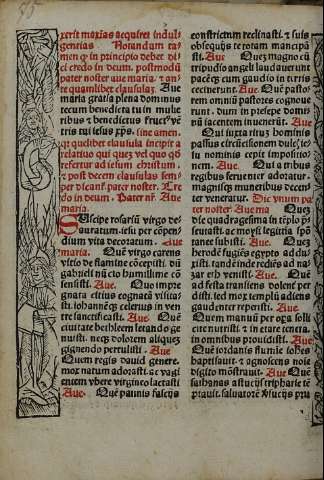 xerit maximas acquiret indul
gencias Notandum ta
men ꝙ in principio debet di
ci credo in deum. postmodū
pater noster aue maria. ⁊ an⸗
te quamlibet clausulaꝫ. Aue
maria gratia plena dominus
tecum benedicta tu in mulie
ribus ⁊ benedictus fruct⁹ vē
tris tui iesus xp̄s. sine amen.
qꝛ quelibet clausula incipit a
relatiuo qui quez vel quo qd̄
refertur ad iesum christum.
⁊ post decem clausulas sem⸗
per dicant̉ pater noster. Cre
do in deum. Pater nr̄. Aue
maria.
Suscipe rosariū virgo de⸗
auratum. iesu per cōpen⸗
dium vita decoratum. Aue
maria. Quē virgo carens
vitio de flamine cōcepisti. dū
gabrieli nūcio humillime cō
sensisti. Aue Quo impre
gnata citius cognatā visitas
sti. iohannem cernens in ven
tre sanctificasti. Aue. Quē
in ciuitate bethleem letando ge
nuisti. necꝫ dolorem aliquez
gignendo pertulisti. Aue
Quem regis dauid genere.
mox natum adorasti. ac vagi
entem vbere virgineo lactasti
Aue. Quē pannis fascijs
constrictum reclinasti. ⁊ suis
obsequijs te totam mancipa
sti. Aue Quez magno cū
tripudio angeli laudauerunt
pacēqꝫ cum gaudio in terris
cecinerunt. Aue Quē pasto⸗
rem omniū pastores cognoue
runt. dum in presepe domi⸗
nū iacentem inuenerūt. Aue
Qui iuxta ritus hominis
passus circūcisionem dulc⸗ ie⸗
su nominis cepit impositio⸗
nem. Aue. Qui a tribus
regibus feruenter adoratur.
magnisqꝫ muneribus decen⸗
ter veneratur. Dic vnum pa
ter noster Aue ma Quez
die quadragesima in tēplo p̄
sentasti. ac moysi legitima spō
ranee subisti. Aue. Quez
herodē fugiēs egypto addu⸗
xisti. tandē inde rediēs ad na⸗
zareth venisti. Aue. Quē
ad festa transiens dolens per
didisti. sed mox templū adiens
gaudenter reperisti. Aue.
Quem manuū per opa solli
cite nutristi ⁊ in etate tenera.
in omnibus prouidisti. Aue
Quē iordanis flumie iohēs
baptisauit. ⁊ agnoscens no⸗
digito mōstrauit. Aue Quē
sathanas astucijs triphariē tē
ptauit. saluatorē